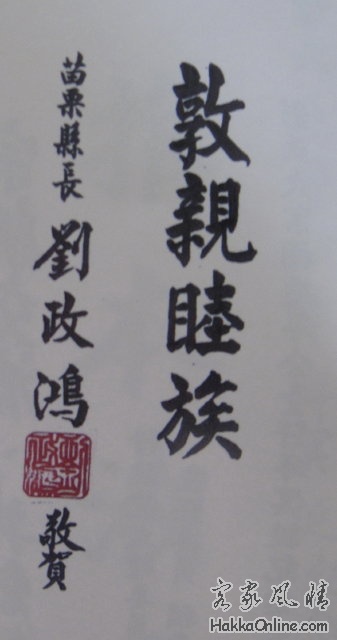 敦親睦族
苗栗縣長 劉政鴻 敬賀
客家風情
HakkaOnline.com